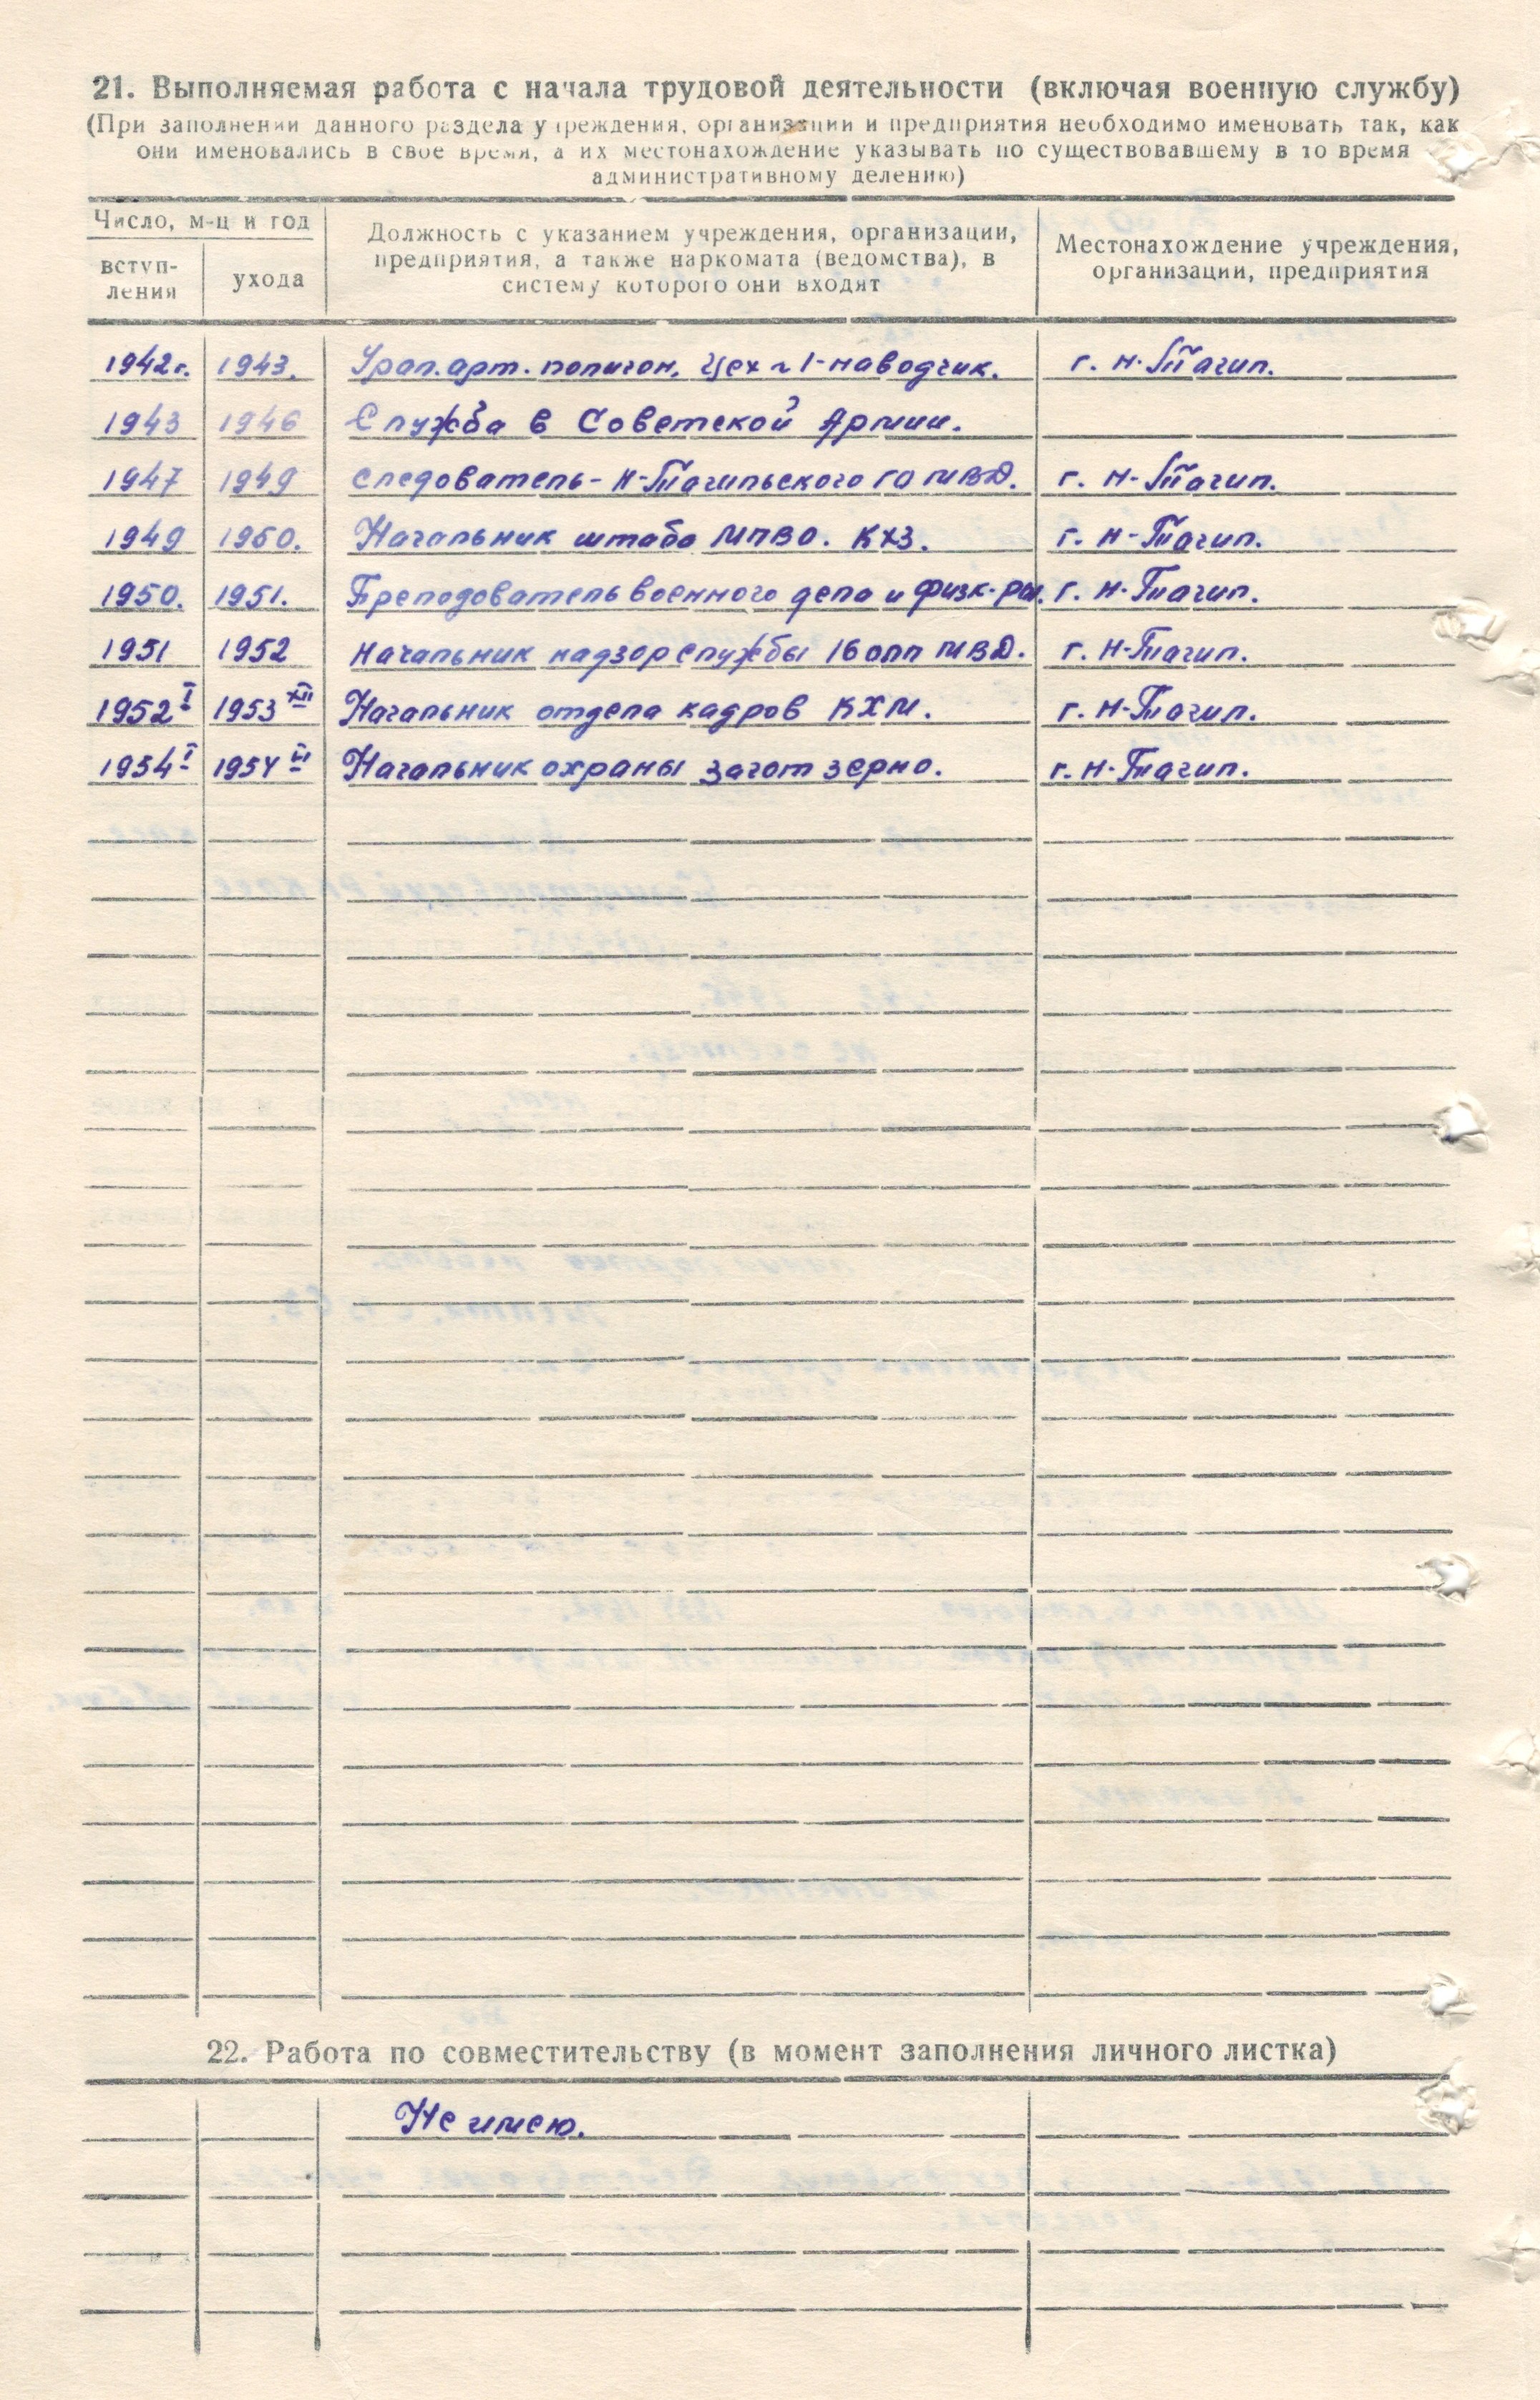 21. Выполняемая работа с начала трудовой деятельности (включая военную службу)
(При заполнении данного раздела учреждения, организации и предприятия необходимо именовать так, как
они именовались в свое время, а их местонахождение указывать по существовавшему в то время
административному делению)
Число, м-ц и год
вступ-
ления
ухода
Должность с указанием учреждения, организации,
предприятия, а также наркомата (ведомства), в
систему которого они входят
Местонахождение учреждения,
организации, предприятия
1942г. 1943. Урал. арт. полигон. Цех №1-наводчик. г. Н-Тагил.
1943 1946 Служба в Советской Армии.
1947 1949 Следователь-Н-Тагильского ГО МВД. г. Н-Тагил.
1949 1950. Начальник штаба МПВО. КХЗ. г. Н-Тагил.
1950. 1951. Преподователь военного дела и физк-ры. г. Н-Тагил.
1951 1952 Начальник надзорслужбы 16 олп МВД. г. Н-Тагил.
1952 I 1953 XII Начальник отдела кадров КХМ. г. Н-Тагил.
1954 I 1954 VI Начальник охраны заготзерно. г. Н-Тагил.
22. Работа по совместительству (в момент заполнения личного листка)
Не имею.